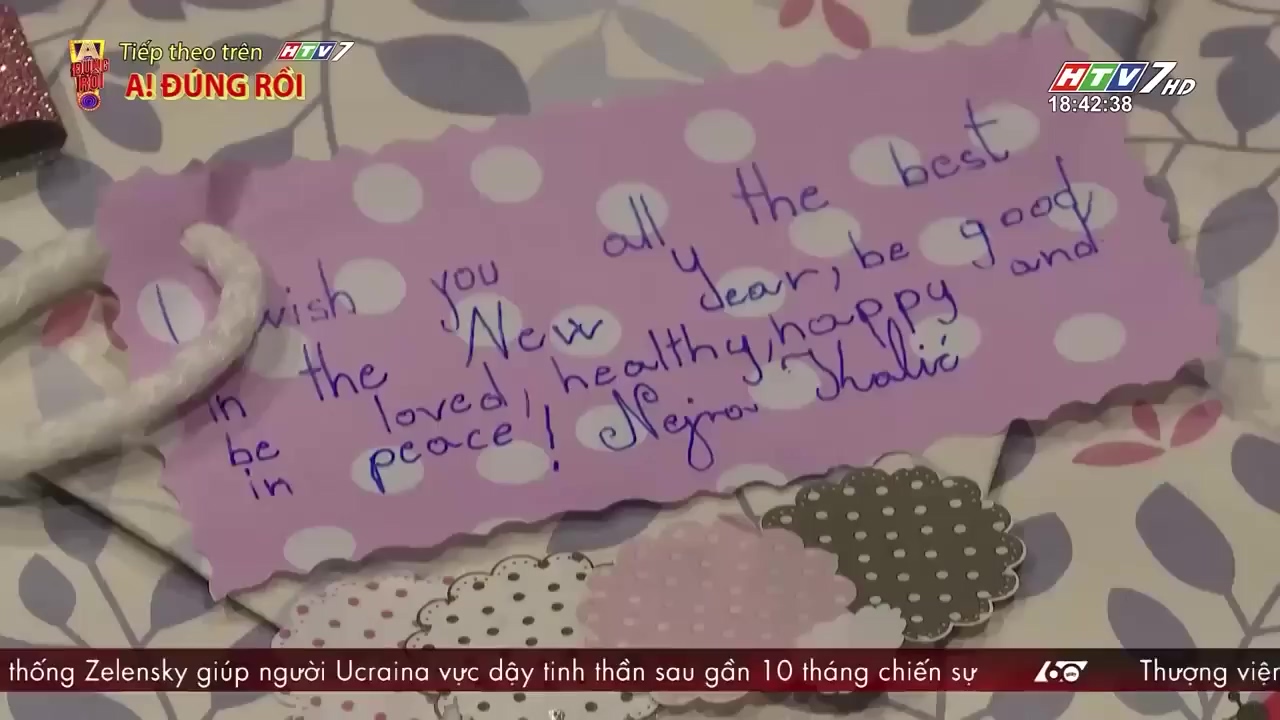 Tiếp theo trên HTV7
A! ĐÚNG RỒI
A ĐÚNG RỒI
HTV7 HD
18:42:38
I wish you all the best
in the New year, be good,
be loved, healthy, happy and
in peace! Nejra Ihalić
thống Zelensky giúp người Ucraina vực dậy tinh thần sau gần 10 tháng chiến sự
60
Thượng viện